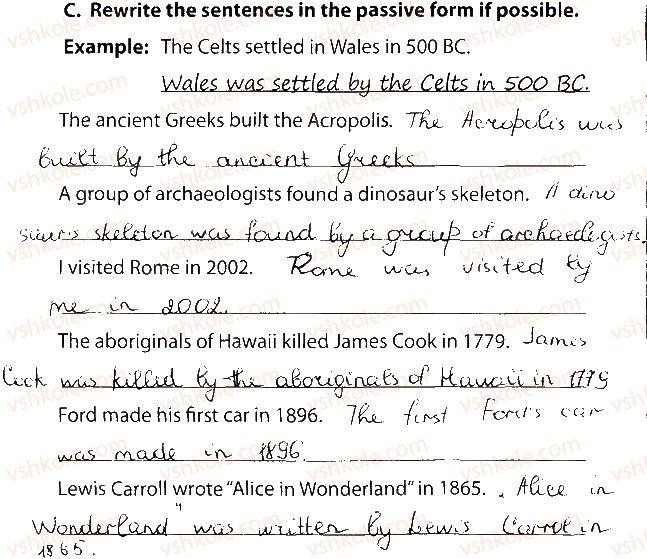 C. Rewrite the sentences in the passive form if possible.
Example: The Celts settled in Wales in 500 BC.
Wales was settled by the Celts in 500 BC.
The ancient Greeks built the Acropolis. The Acropolis was
built by the ancient Greeks
A group of archaeologists found a dinosaur's skeleton. A dino
saur's skeleton was found by a group of archaeologists.
I visited Rome in 2002. Rome was visited by
me in 2002.
The aboriginals of Hawaii killed James Cook in 1779. James
Cook was killed by the aboriginals of Hawaii in 1779
Ford made his first car in 1896. The first Ford's car
was made in 1896.
Lewis Carroll wrote "Alice in Wonderland" in 1865. „Alice in
Wonderland" was written by Lewis Carrol in
1865.
vshkole.com